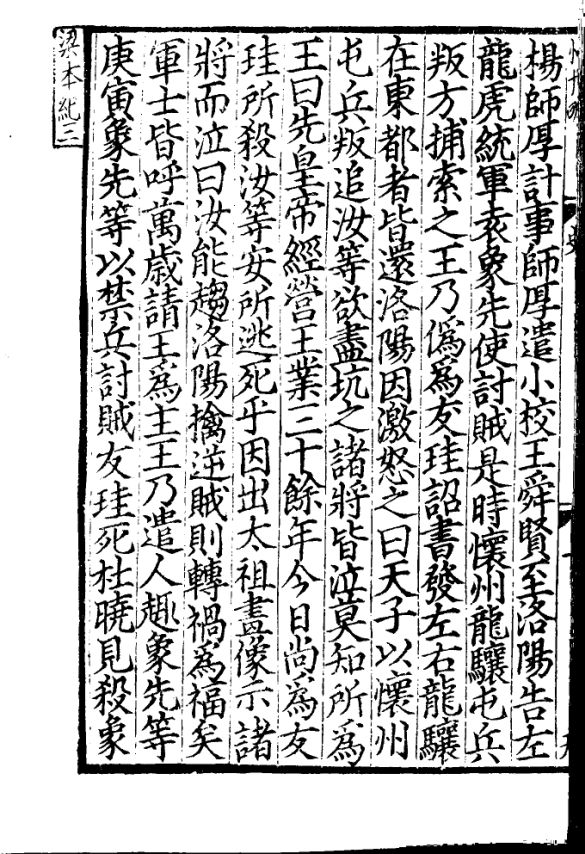 楊師厚計事師厚遣小校王舜賢至洛陽告左
龍虎統軍袁象先使討賊是時懷州龍驤屯兵
叛方捕索之王乃僞爲友珪詔書發左右龍驤
在東都者皆還洛陽因激怒之曰天子以懷州
屯兵叛追汝等欲盡坑之諸將皆泣莫知所爲
王曰先皇帝經營王業三十餘年今日尚爲友
珪所殺汝等安所逃死乎因出太祖畫像示諸
將而泣曰汝能趨洛陽擒逆賊則轉禍爲福矣
軍士皆呼萬歲請王爲主王乃遣人趣象先等
庚寅象先等以禁兵討賊友珪死杜曉見殺象
梁本紀三